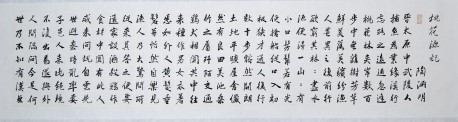 桃花源記
陶淵明
晉太原中武陵人
捕魚為業緣溪行
忘路之遠近忽逢
桃花林夾岸數百
步中無雜樹芳草
鮮美落英繽紛漁
人甚異之復前行
欲窮其林林盡水
源便得一山山有
小口彷彿若有光
便捨船從口入初
極狹才通人復行
數十步豁然開朗
土地平曠屋舍儼
然有良田美池桑
竹之屬阡陌交通
雞犬相聞其中往
來種作男女衣著
悉如外人黃髮垂
髫並怡然自樂見
漁人乃大驚問所
從來具答之便要
還家設酒殺雞作
食村中聞有此人
咸來問訊自云先
世避秦時亂率妻
子邑人來此絕境
不復出焉遂與外
人間隔問今是何
世乃不知有漢無